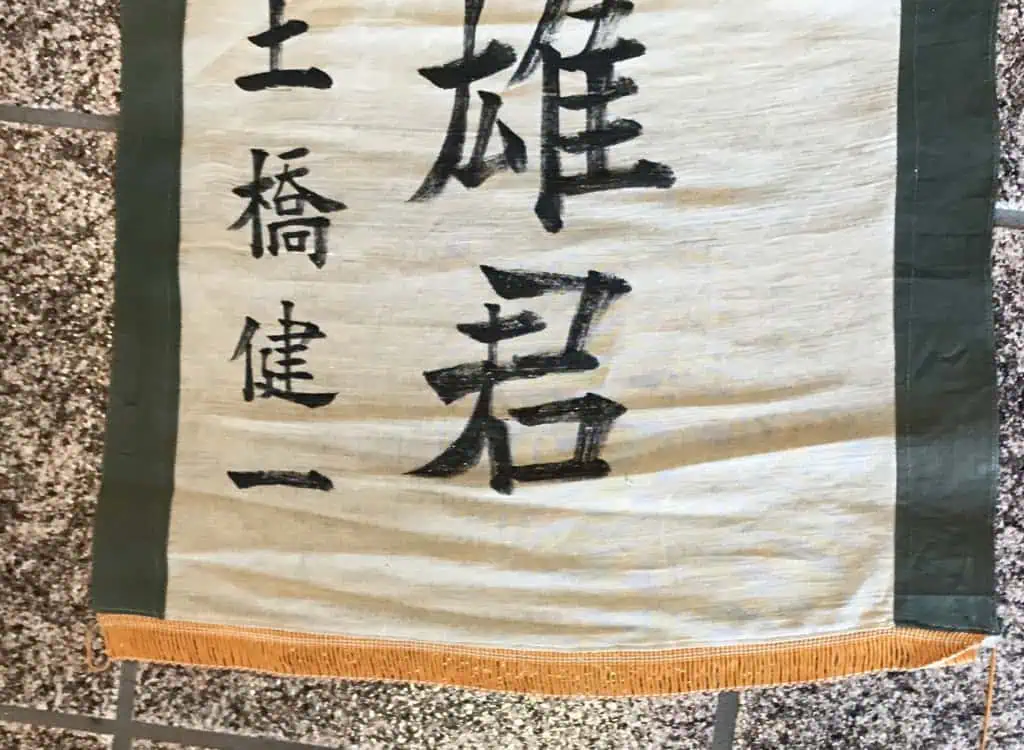 雄君
土橋健一